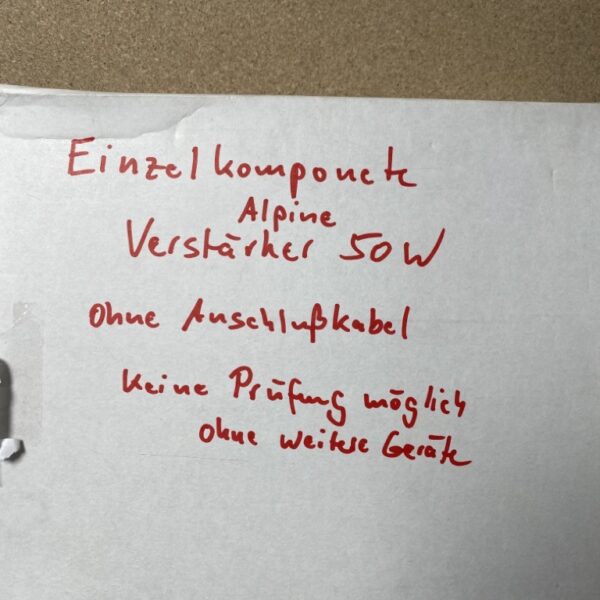 Einzelkomponete
Alpine
Verstärker 50W
ohne Anschlußkabel
keine Prüfung möglich
ohne weitere Geräte